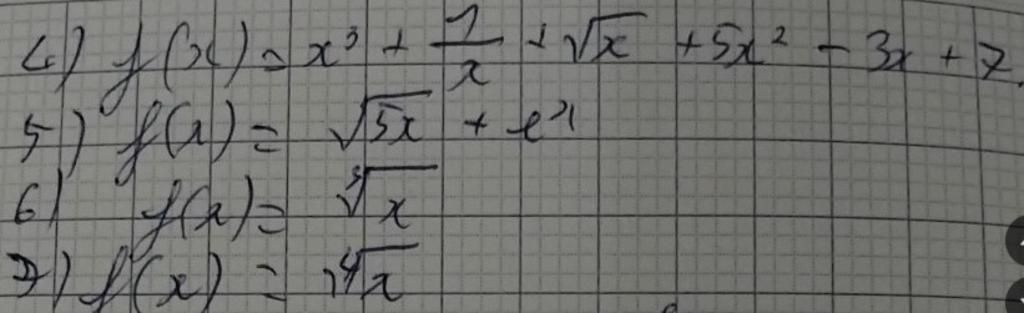 4) f(x) = x³ + 1/x + √x + 5x² - 3x + 7
5) f(x) = √5x + eˣ
6) f(x) = ³√x
7) f(x) = ⁴√x